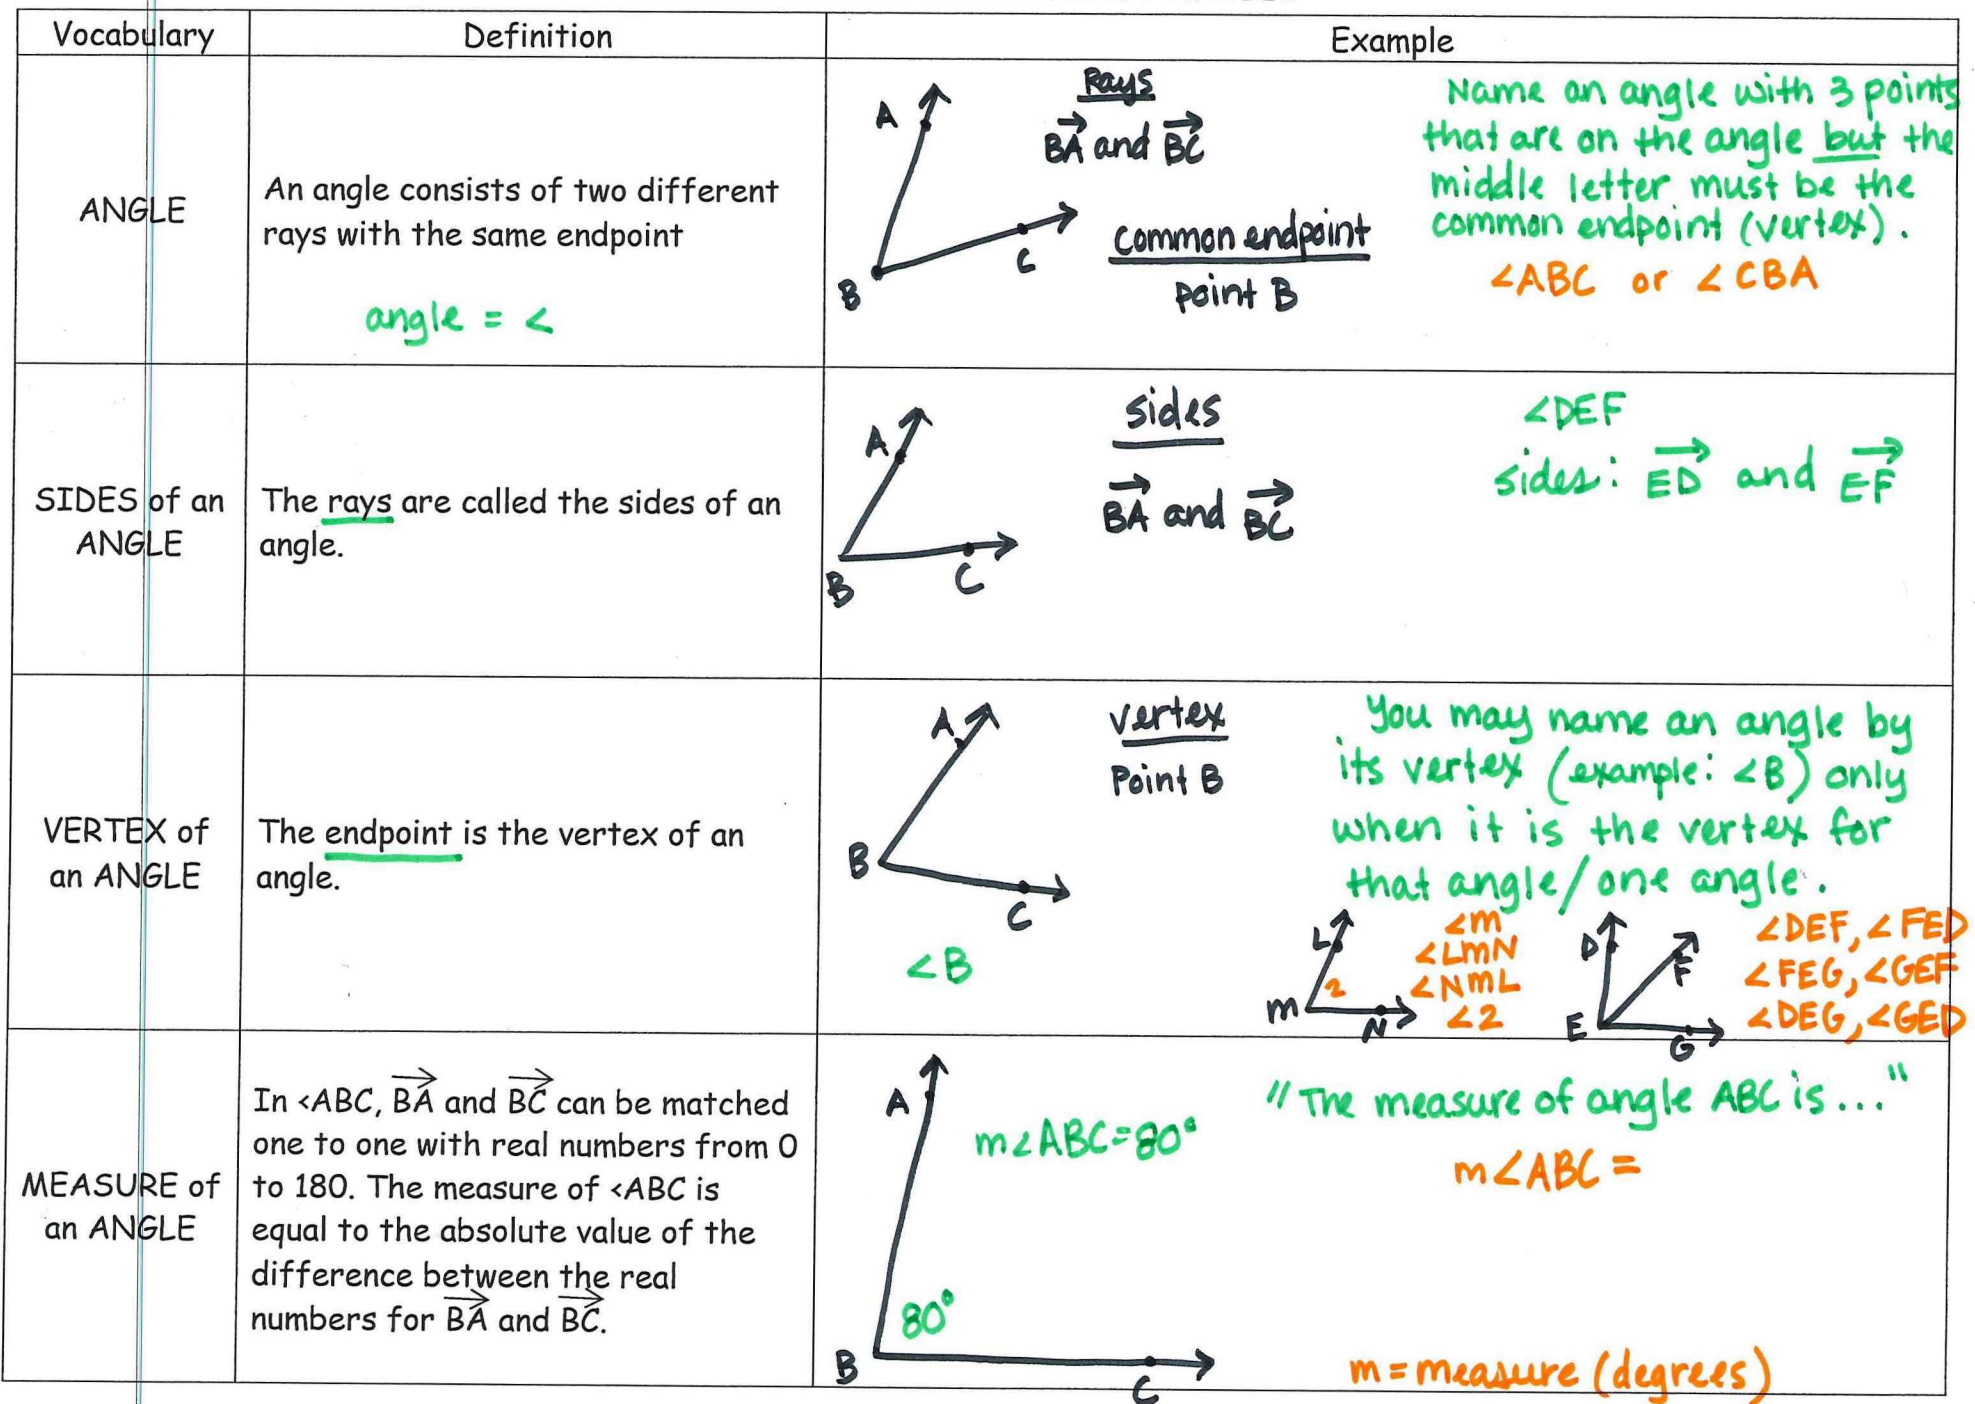 Vocabulary
Definition
Example
ANGLE
An angle consists of two different
rays with the same endpoint
angle = <
A
B
C
Rays
BA and BC
common endpoint
point B
Name an angle with 3 points
that are on the angle but the
middle letter must be the
common endpoint (vertex).
∠ABC or ∠CBA
SIDES of an
ANGLE
The rays are called the sides of an
angle.
A
B
C
sides
BA and BC
∠DEF
sides: ED and EF
VERTEX of
an ANGLE
The endpoint is the vertex of an
angle.
A
B
C
∠B
vertex
Point B
You may name an angle by
its vertex (example: ∠B) only
when it is the vertex for
that angle/one angle.
L
2
m
N
∠m
∠LmN
∠NmL
∠2
D
F
E
G
∠DEF, ∠FED
∠FEG, ∠GEF
∠DEG, ∠GED
MEASURE of
an ANGLE
In <ABC, BA and BC can be matched
one to one with real numbers from 0
to 180. The measure of <ABC is
equal to the absolute value of the
difference between the real
numbers for BA and BC.
A
80°
B
C
m∠ABC=80°
"The measure of angle ABC is..."
m∠ABC =
m = measure (degrees)